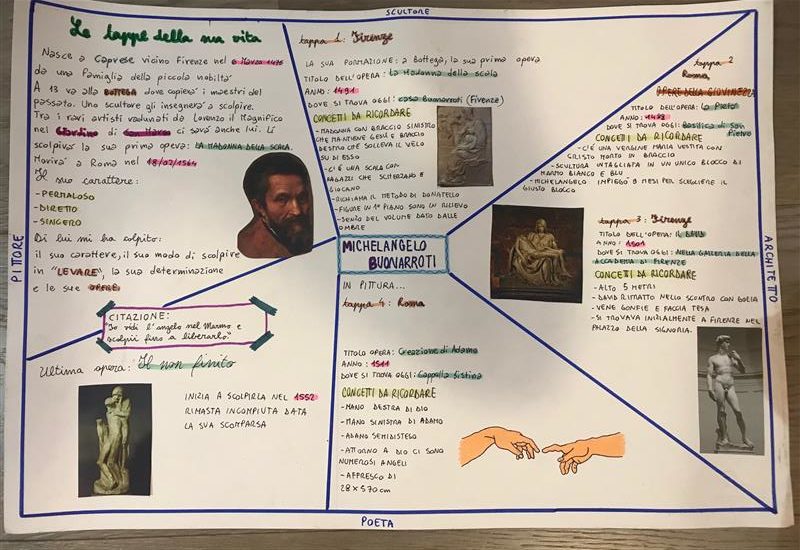 SCULTORE
Le tappe della sua vita
Nasce a Caprese vicino Firenze nel 6 Marzo 1475
da una famiglia della piccola nobiltà
A 13 va alla BOTTEGA dove copiera' i maestri del
passato. Uno scultore gli insegnerà a scolpire.
Tra i vari artisti radunati da Lorenzo il Magnifico
nel Giardino di San Marco ci sarà anche lui. Lì
scolpirà la sua prima opera: LA MADONNA DELLA SCALA.
Morirà a Roma nel 18/02/1564
Il suo carattere:
-PERMALOSO
-DIRETTO
-SINCERO
Di lui mi ha colpito:
il suo carattere, il suo modo di scolpire
in "LEVARE", la sua determinazione
e le sue OPERE.
CITAZIONE:
"Io vidi l'angelo nel Marmo e
scolpii fino a liberarlo"
Ultima opera: Il non finito
INIZIA A SCOLPIRLA NEL 1552
RIMASTA INCOMPIUTA DATA
LA SUA SCOMPARSA
tappa 1: Firenze
LA SUA FORMAZIONE: a Bottega, la sua prima opera
TITOLO DELL'OPERA: La Madonna della scala
ANNO: 1491
DOVE SI TROVA OGGI: casa Buonarroti (Firenze)
CONCETTI DA RICORDARE
-MADONNA CON BRACCIO SINISTRO
CHE MANTIENE GESÙ E BRACCIO
DESTRO CHE SOLLEVA IL VELO
SU DI ESSO
-C'È UNA SCALA CON
RAGAZZI CHE SCHERZANO E
GIOCANO
-RICHIAMA IL METODO DI DONATELLO
-FIGURE IN 1° PIANO SONO IN RILIEVO
-SENSO DEL VOLUME DATO DALLE
OMBRE
MICHELANGELO
BUONARROTI
IN PITTURA...
tappa 4: Roma
TITOLO OPERA: Creazione di Adamo
ANNO: 1511
DOVE SI TROVA OGGI: Cappella Sistina
CONCETTI DA RICORDARE
-MANO DESTRA DI DIO
-MANO SINISTRA DI ADAMO
-ADAMO SEMIDISTESO
-ATTORNO A DIO CI SONO
NUMEROSI ANGELI
-AFFRESCO DI
28X570 cm
tappa 2
Roma,
OPERE DELLA GIOVINEZZA
TITOLO DELL'OPERA: La Pietà
ANNO: 1497
DOVE SI TROVA OGGI: Basilica di San
Pietro
CONCETTI DA RICORDARE
-C'È UNA VERGINE MARIA VESTITA CON
CRISTO MORTO IN BRACCIO
-SCULTURA INTAGLIATA IN UN UNICO BLOCCO DI
MARMO BIANCO E BLU
-MICHELANGELO IMPIEGÒ 9 MESI PER SCEGLIERE IL
GIUSTO BLOCCO
tappa 3: Firenze
TITOLO DELL'OPERA: IL DAVID
ANNO: 1501
DOVE SI TROVA OGGI: NELLA GALLERIA DELLA
ACCADEMIA DI FIRENZE
CONCETTI DA RICORDARE
-ALTO 5 METRI
-DAVID RITRATTO NELLO SCONTRO CON GOLIA
-VENE GONFIE E FACCIA TESA
-SI TROVAVA INIZIALMENTE A FIRENZE NEL
PALAZZO DELLA SIGNORIA.
PITTORE
ARCHITETTO
POETA